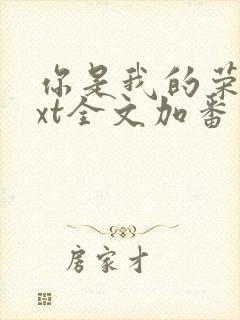 你是我的荣
xt全文加番
房家才